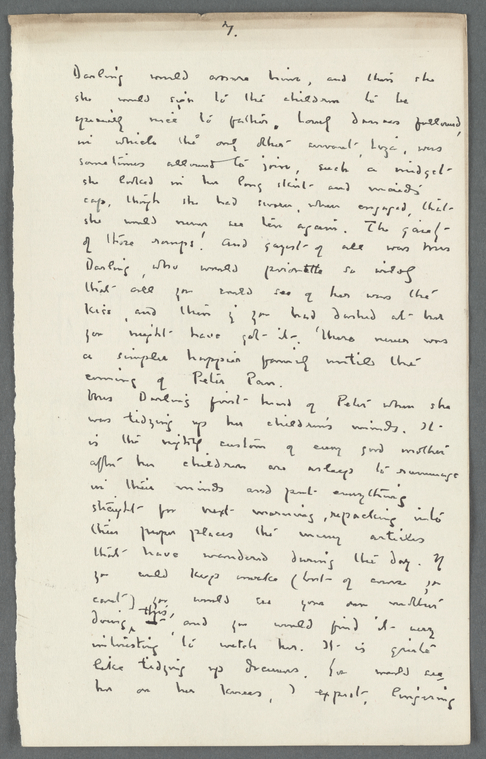 7.
Darling would assure him, and then she
she would sign to the children to be
specially nice to father. Lovely dances followed,
in which the only other servant, Liza, was
sometimes allowed to join, such a midget
she looked in her long skirt and maid's
cap, though she had sworn, when engaged, that
she would never see ten again. The gaiety
of those romps! And gayest of all was Mrs
Darling, who would pirouette so wildly
that all you could see of her was the
kiss, and then if you had dashed at her
you might have got it. There never was
a simpler happier family until the
coming of Peter Pan.
Mrs Darling first heard of Peter when she
was tidying up her children's minds. It
is the nightly custom of every good mother
after her children are asleep to rummage
in their minds and put everything
straight for next morning, repacking into
their proper places the many articles
that have wandered during the day. If
you could keep awake (but of course you
can't) you would see your own mother
doing this, and you would find it very
interesting to watch her. It is quite
like tidying up drawers. You would see
her on her knees, I expect, lingering